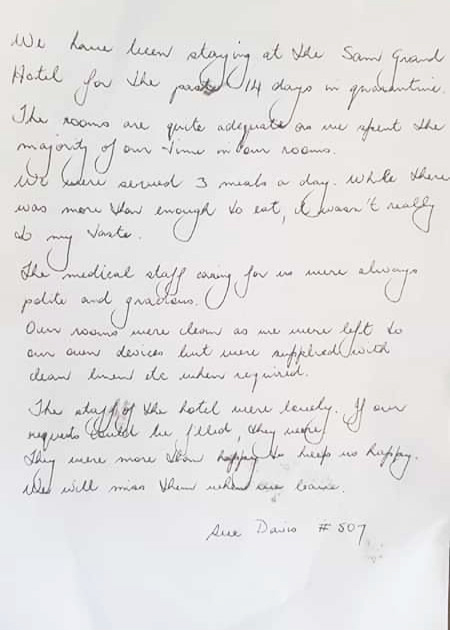 We have been staying at the Sam Grand
Hotel for the past 14 days in quarantine.
The rooms are quite adequate as we spent the
majority of our time in our rooms.
We were served 3 meals a day. While there
was more than enough to eat, it wasn't really
to my taste.
The medical staff caring for us were always
polite and gracious.
Our rooms were clean as we were left to
our own devices but were supplied with
clean linen etc when required.
The staff of the hotel were lovely. If our
requests could be filled, they were
They were more than happy to keep us happy.
We will miss them when we leave.
Sue Davis # 507